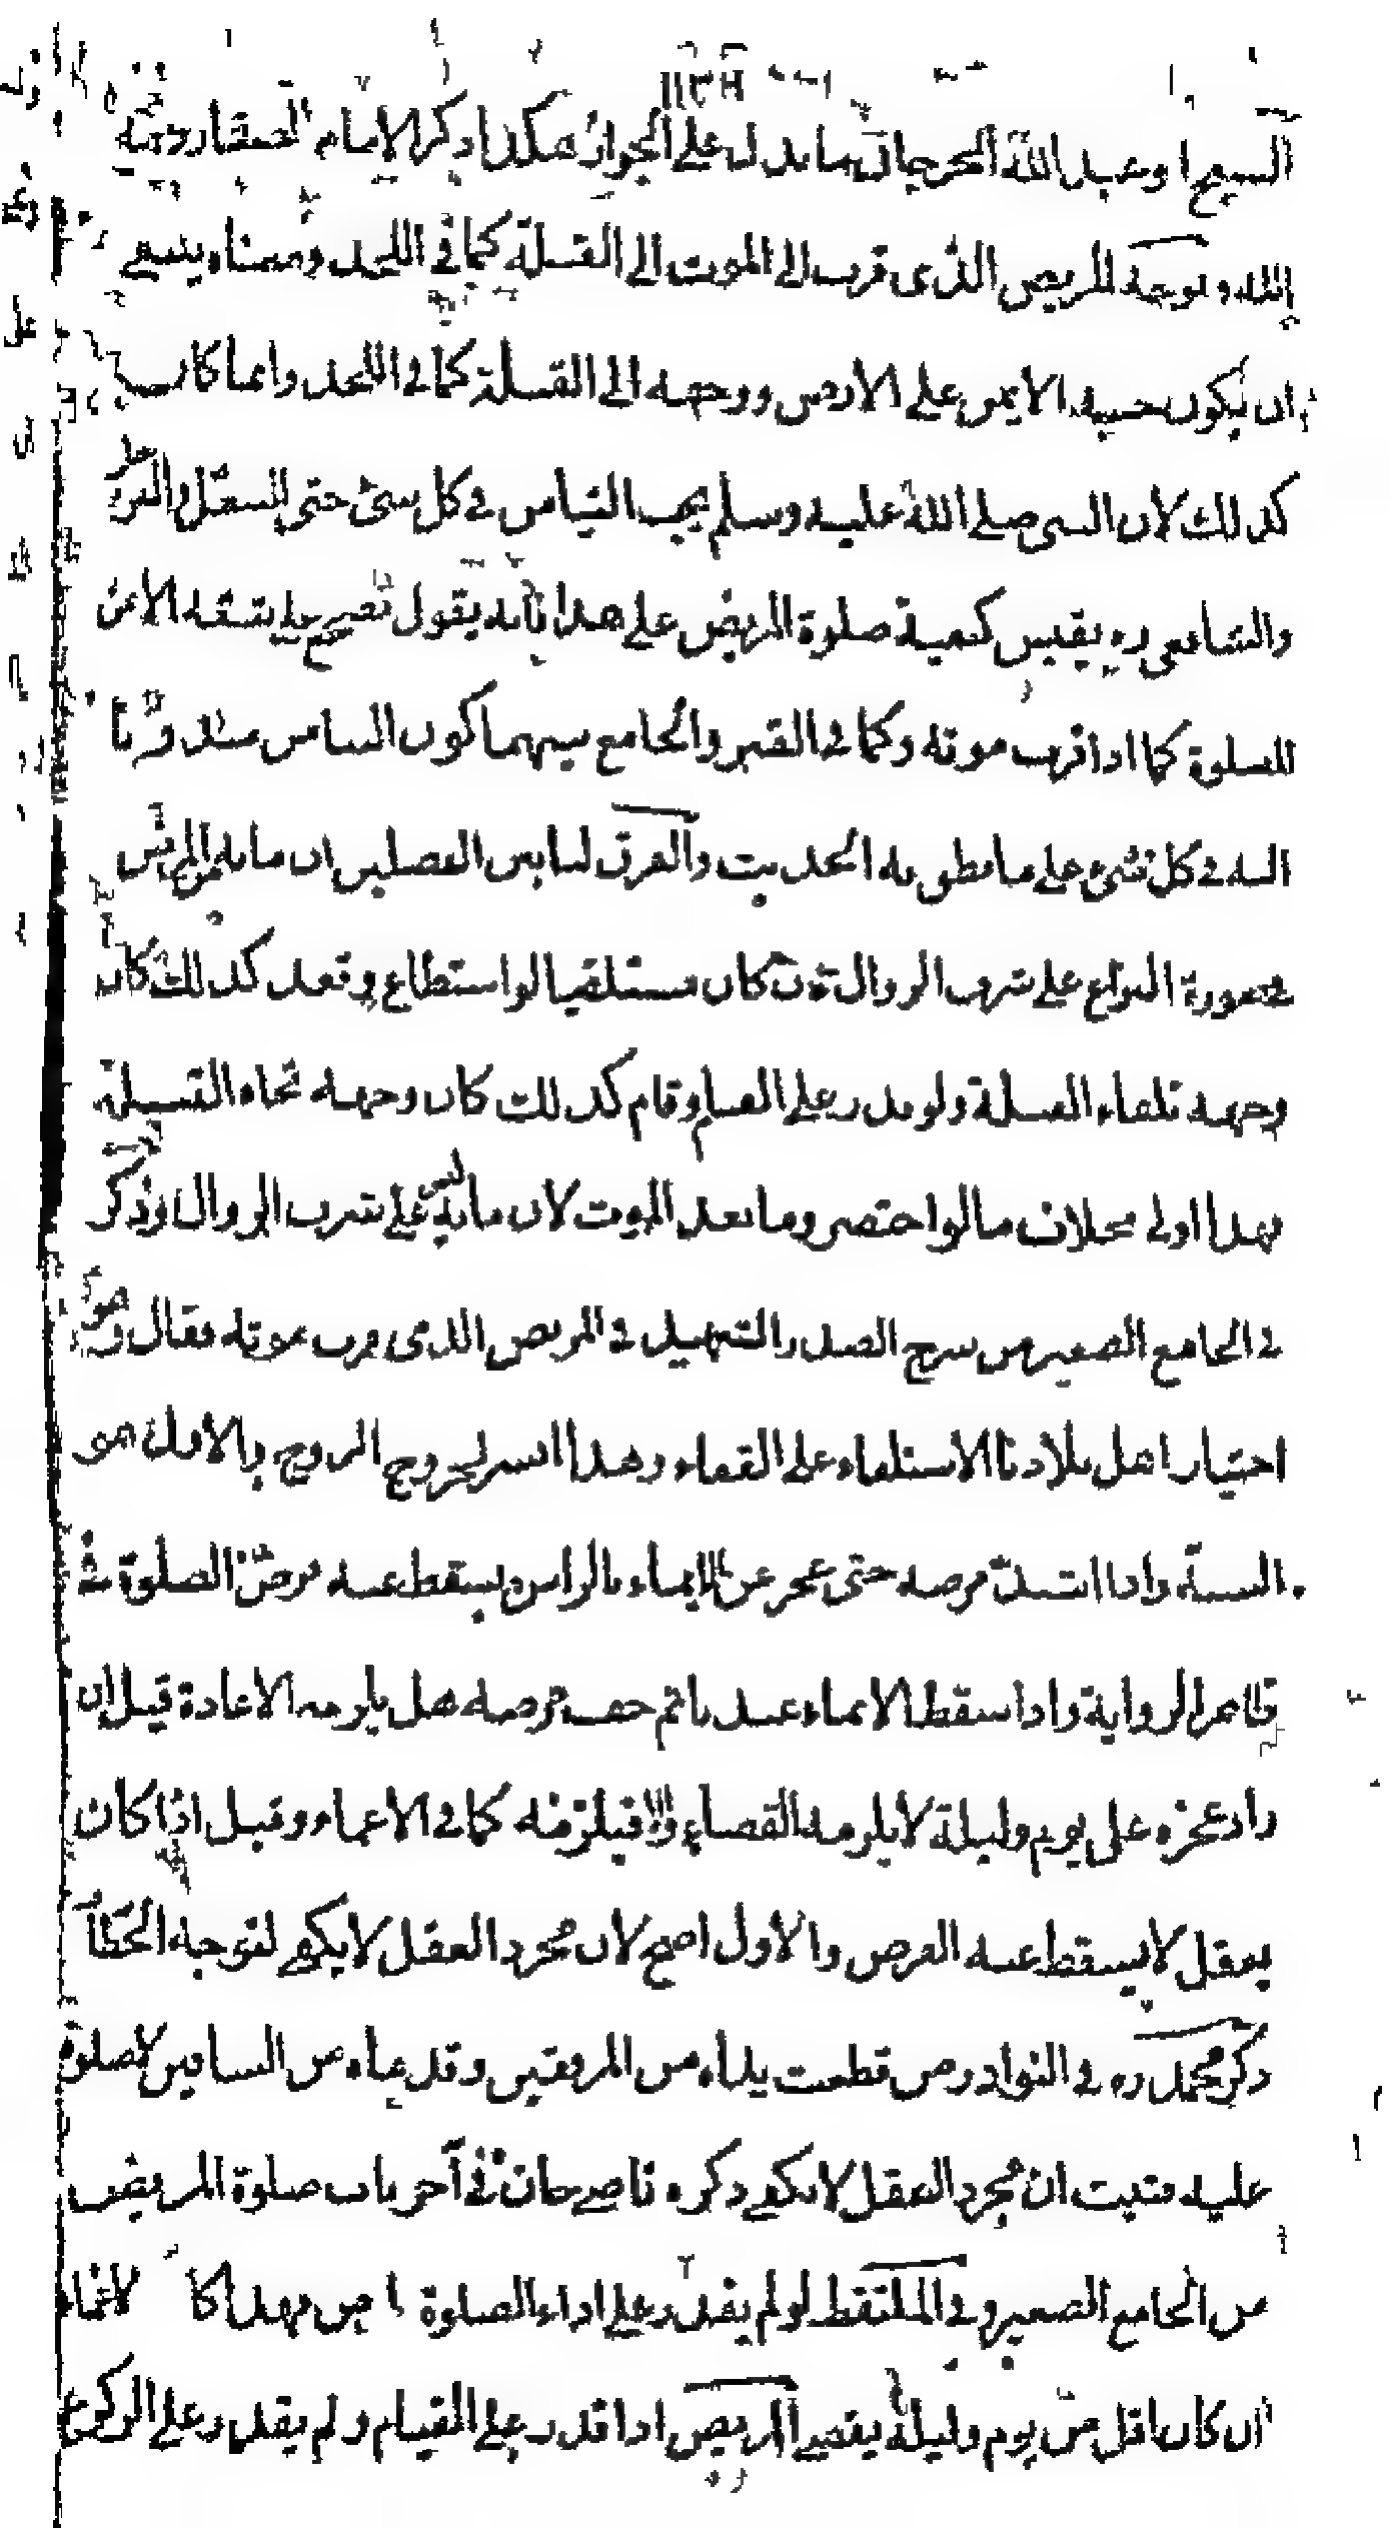 الشيخ ابو عبد الله الجرجاني ما يدل على الجواز هكذا ذكر الامام الصفار رحمة
الله ويوجه المريض الذي قرب الى الموت الى القبلة كما في اللحد ومعناه ينبغي
ان يكون جنبه الايمن على الارض ووجهه الى القبلة كما في اللحد وانما كان
كذلك لان النبي صلى الله عليه وسلم يحب التيامن في كل شئ حتى التنعل والترجل
والشافعي ره يقيس كيفية صلوة المريض على هذا بانه يقول تضجع على شقه الايمن
للصلوة كما اذا قرب موته وكما في القبر والجامع بينهما كون التيامن مندوبا
اليه في كل شئ على ما نطق به الحديث والفرق لنا بين الفصلين ان ما به المريض
في صورة النزاع على شرف الزوال كان مستلقيا لو استطاع وقعد كذلك كان
وجهه تلقاء القبلة ولو قدر على القيام وقام كذلك كان وجهه تجاه القبلة
فهذا اولى بخلاف ما لو احتضر وما بعد الموت لان ما به ليس على شرف الزوال وذكر
في الجامع الصغير من شرح الصدر الشهيد في المريض الذي قرب موته فقال و
اختيار اهل بلادنا الاستلقاء على القفاء وهذا ايسر لخروج الروح والاول هو
السنة واذا اشتد مرضه حتى عجز عن الايماء بالراس يسقط عنه فرض الصلوة في
ظاهر الرواية واذا سقط الايماء عنه ثم خف مرضه هل يلزمه الاعادة قيل ان
زاد عجزه على يوم وليلة لا يلزمه القضاء والا فيلزمه كما في الاغماء وقيل اذا كان
يعقل لا يسقط عنه الفرض والاول اصح لان مجرد العقل لا يكفي لتوجه الخطاب
ذكر محمد ره في النوادر من قطعت يداه من المرفقين وقدماه من الساقين لا صلوة
عليه فثبت ان مجرد العقل لا يكفي ذكره قاضي خان في آخر باب صلوة المريض
من الجامع الصغير وفي الملتقط لو لم يقدر على اداء الصلوة
ان كان اقل من يوم وليلة يقضي المريض اذا قدر على القيام ولم يقدر على الركوع